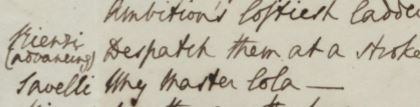 Ambition's loftiest ladder
Rienzi
(advancing) Despatch them at a stroke
Savelli Why Master Cola —